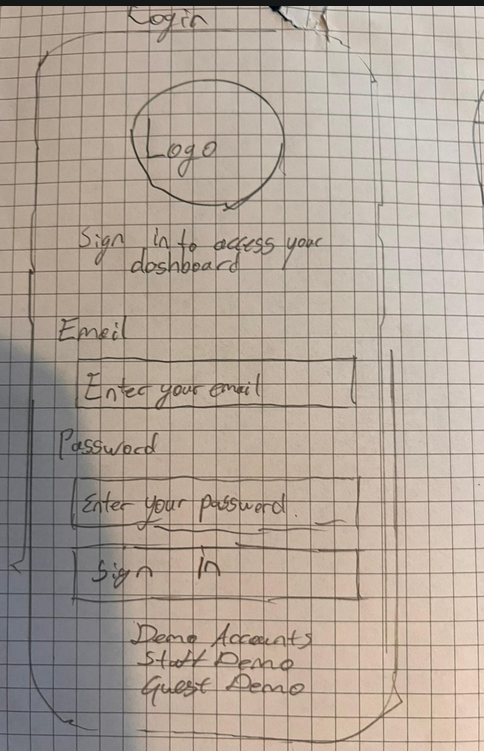 Login
Logo
Sign in to access your
dashboard
Email
Enter your email
Password
Enter your password.
Sign in
Demo Accounts
Staff Demo
Guest Demo